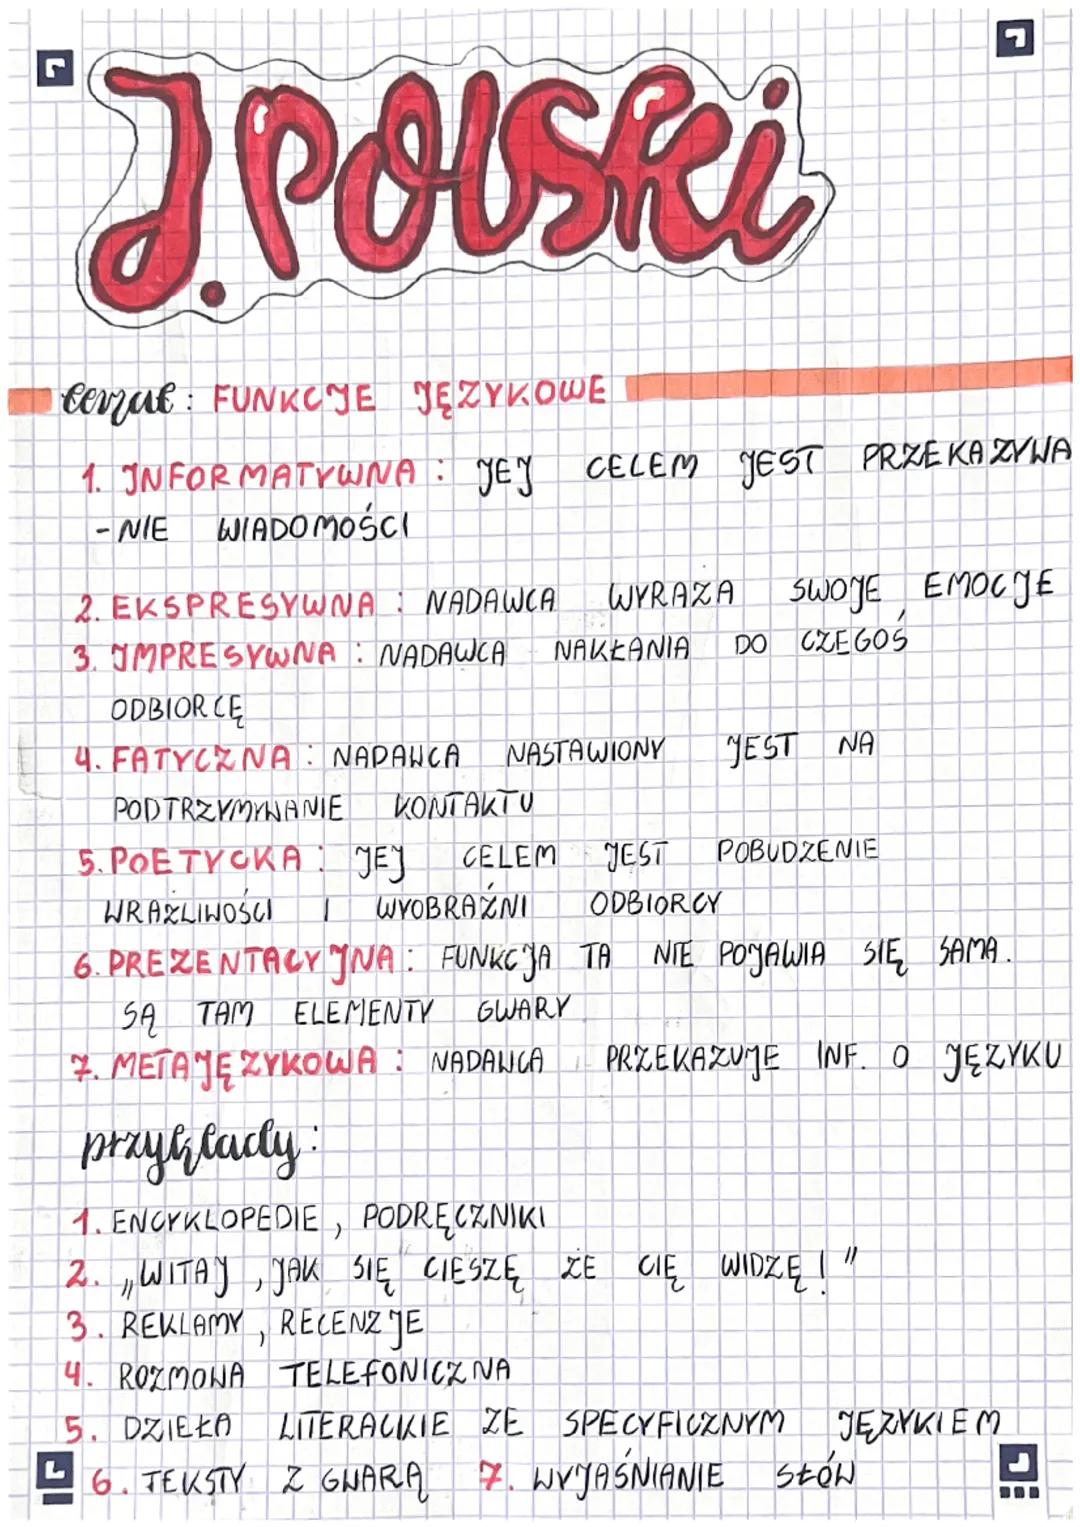 J. Polski
temat: FUNKCJE JĘZYKOWE
1. INFORMATYWNA: JEJ CELEM JEST PRZEKAZYWA
-NIE WIADOMOŚCI
2. EKSPRESYWNA: NADAWCA WYRAŻA SWOJE EMOCJE
3. IMPRESYWNA: NADAWCA NAKŁANIA DO CZEGOŚ
ODBIORCĘ
4. FATYCZNA: NADAWCA NASTAWIONY JEST NA
PODTRZYMYWANIE KONTAKTU
5. POETYCKA: JEJ CELEM JEST POBUDZENIE
WRAŻLIWOŚCI I WYOBRAŹNI ODBIORCY
6. PREZENTACYJNA: FUNKCJA TA NIE POJAWIA SIĘ SAMA.
SĄ TAM ELEMENTY GWARY
7. METAJĘZYKOWA: NADAWCA PRZEKAZUJE INF. O JĘZYKU
przykłady:
1. ENCYKLOPEDIE, PODRĘCZNIKI
2. „WITAJ, JAK SIĘ CIESZĘ ŻE CIĘ WIDZĘ!"
3. REKLAMY, RECENZJE
4. ROZMOWA TELEFONICZNA
5. DZIEŁA LITERACKIE ZE SPECYFICZNYM JĘZYKIEM
6. TEKSTY Z GWARĄ 7. WYJAŚNIANIE SŁÓW